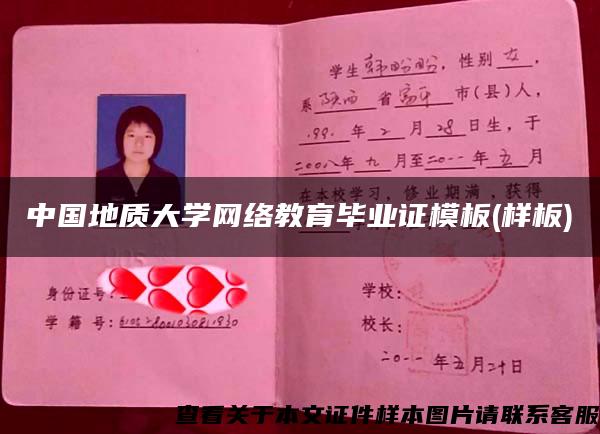 学生韩盼盼，性别女，
系陕西省富平市(县)人，
1991年2月28日生，于
二00八年九月至二0一一年五月
在本校学习，修业期满，获得
中国地质大学网络教育毕业证模板(样板)
身份证号：
学籍号：
学校：
校长：
二0一一年五月二十日
查看关于本文证件样本图片请联系客服